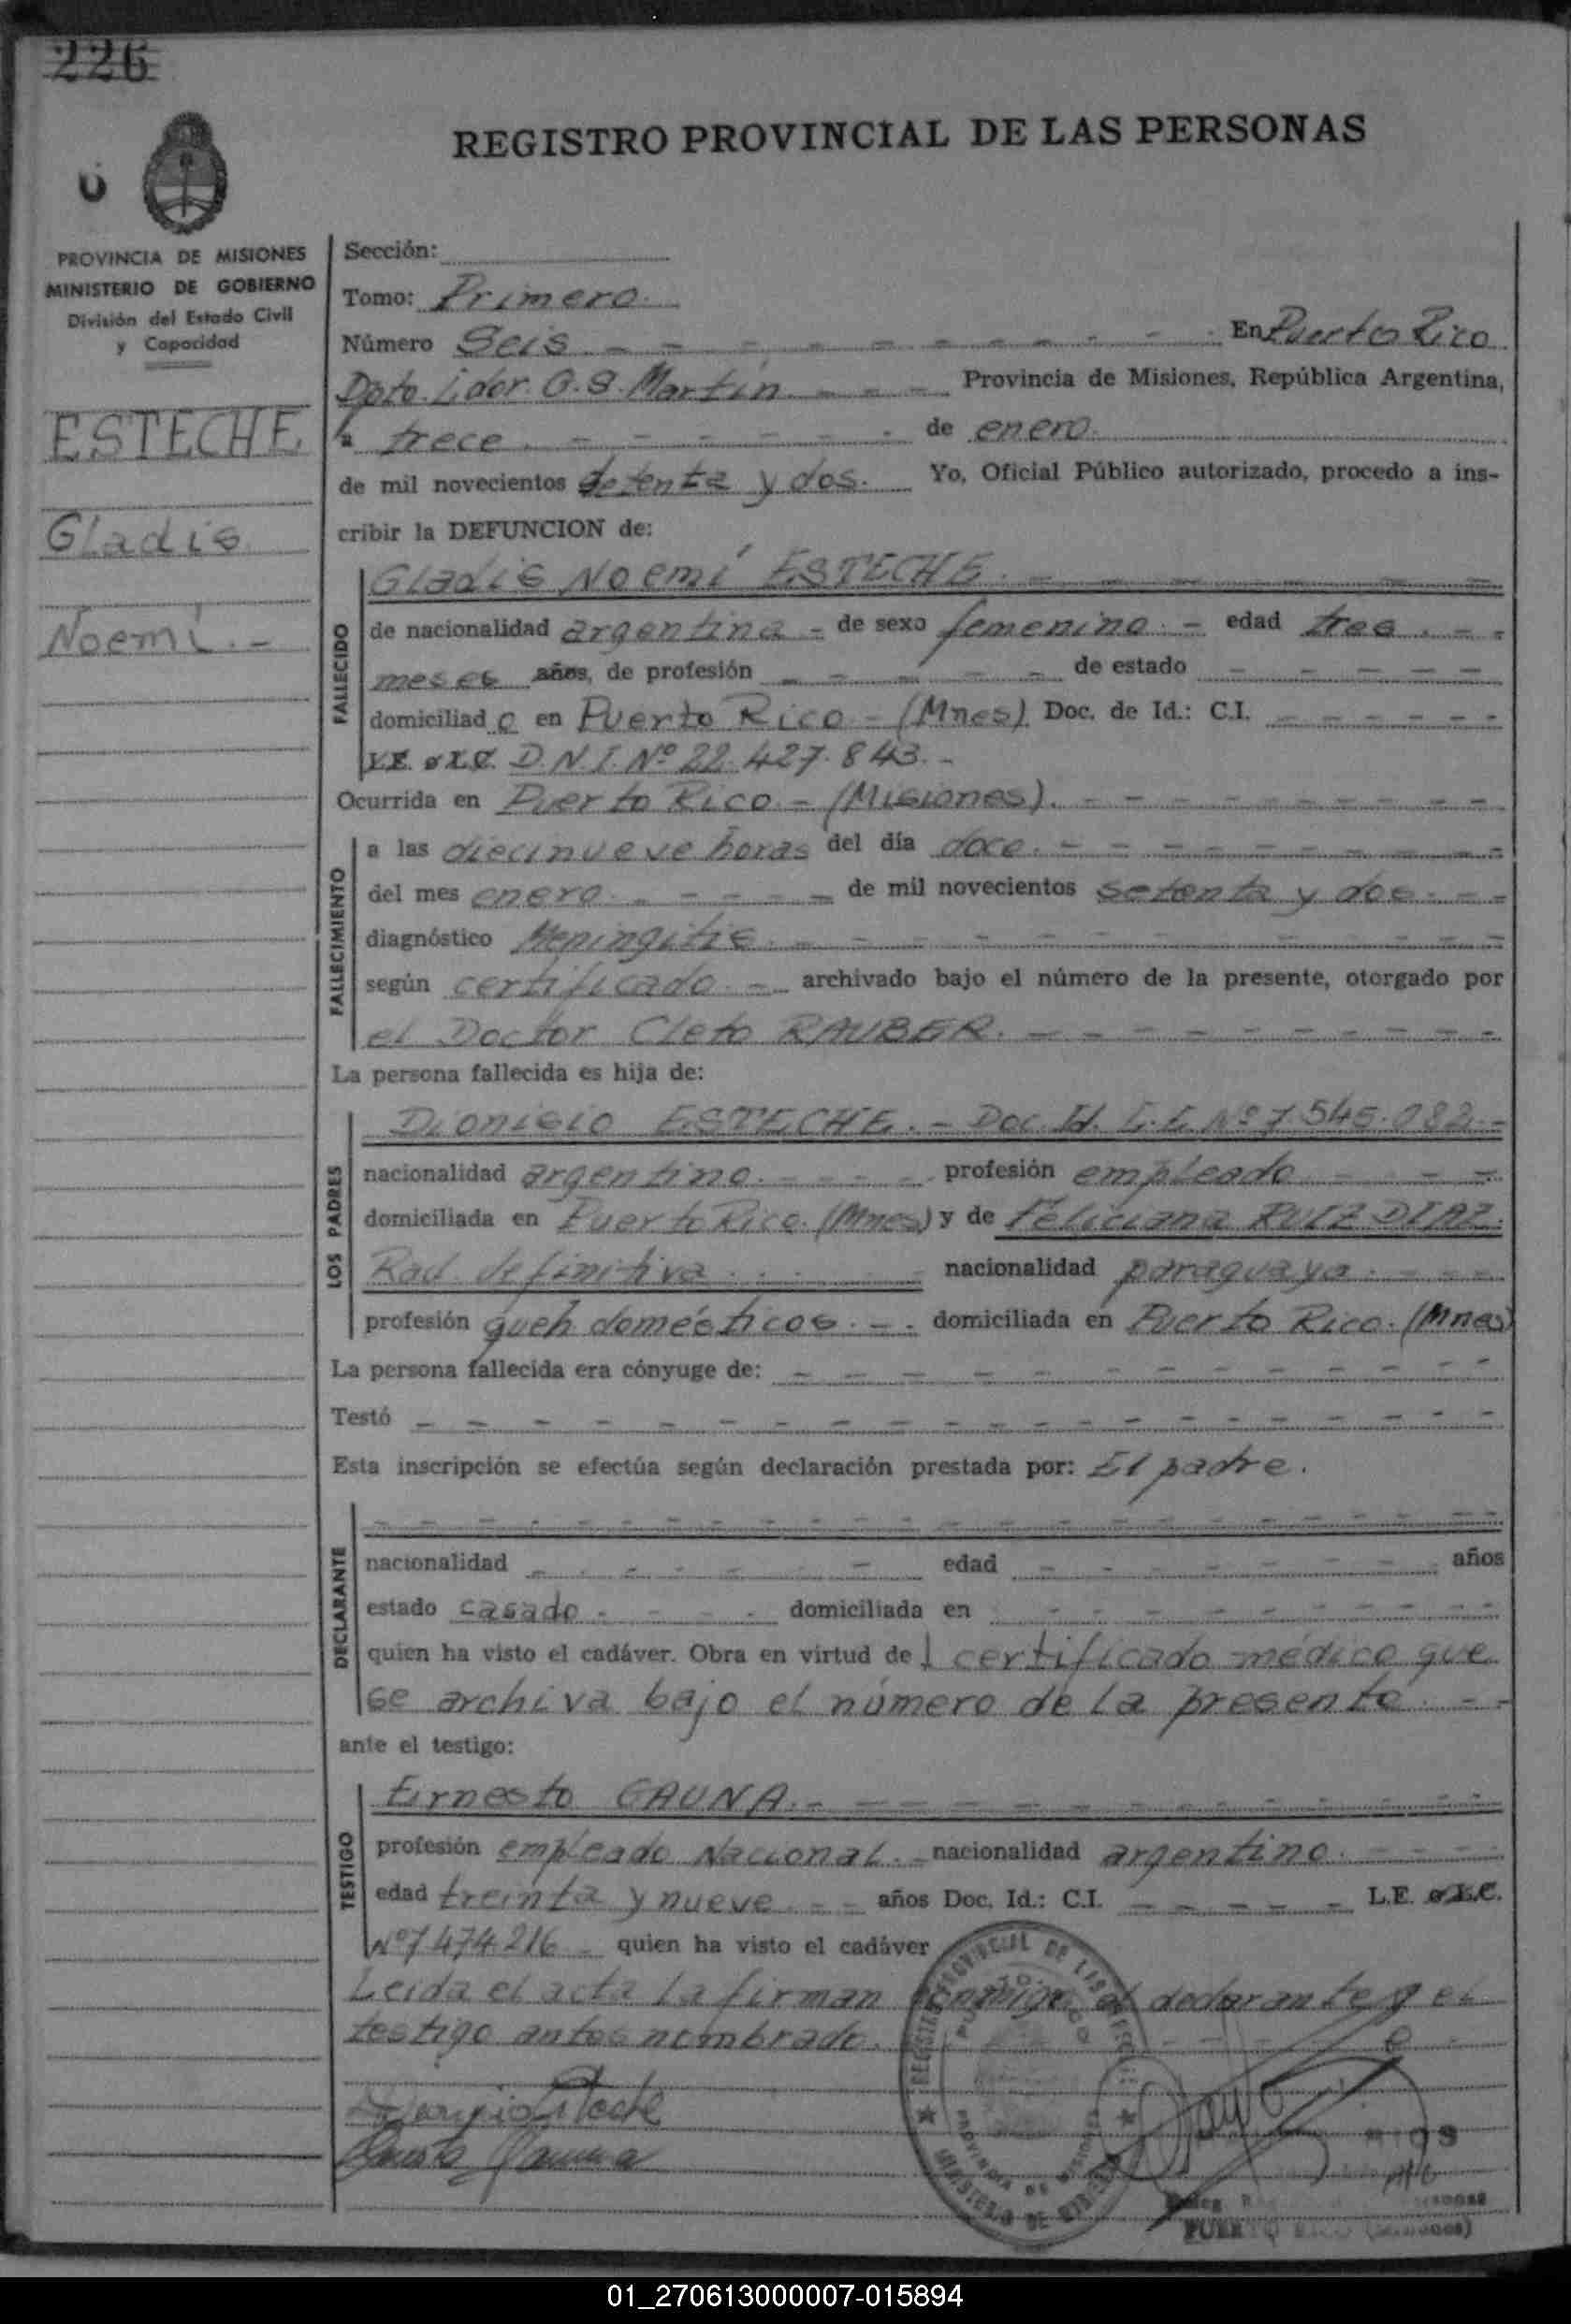 226
REGISTRO PROVINCIAL DE LAS PERSONAS
PROVINCIA DE MISIONES
MINISTERIO DE GOBIERNO
División del Estado Civil
y Capacidad
ESTECHE
Gladis
Noemí.-
Sección:
Tomo: Primero.
Número Seis - - - - - - - - - - En Puerto Rico
Dpto. Ldor. G. S. Martín. - - - Provincia de Misiones, República Argentina,
a trece. - - - - - - de enero.
de mil novecientos setenta y dos. Yo, Oficial Público autorizado, procedo a ins-
cribir la DEFUNCION de:
FALLECIDO
Gladis Noemí ESTECHE. - - - - - - -
de nacionalidad argentina - de sexo femenino. - edad tres. - -
meses años, de profesión - - - - - de estado - - - - -
domiciliad a en Puerto Rico - (Mnes) Doc. de Id.: C.I. - - - - -
L.E. o L.C. D.N.I. Nº 22.427.843.-
Ocurrida en Puerto Rico - (Misiones). - - - - - - - -
FALLECIMIENTO
a las diecinueve horas del día doce. - - - - - - - -
del mes enero. - - - - - de mil novecientos setenta y dos. - -
diagnóstico Meningitis. - - - - - - - - - - -
según certificado. - archivado bajo el número de la presente, otorgado por
el Doctor Cleto RAUBER. - - - - - - - - -
La persona fallecida es hija de:
LOS PADRES
Dionisio ESTECHE. - Doc. Id. L.E. Nº 7.545.082.-
nacionalidad argentino. - - - - profesión empleado - - -
domiciliada en Puerto Rico. (Mnes) y de Feliciana RUIZ DIAZ.
Rad. definitiva. nacionalidad paraguaya. - - -
profesión queh. domésticos. - . domiciliada en Puerto Rico. (Mnes)
La persona fallecida era cónyuge de: - - - - - - - - - - -
Testó - - - - - - - - - - - - - - - - - -
Esta inscripción se efectúa según declaración prestada por: El padre.
DECLARANTE
nacionalidad - - - - - - edad - - - - - - años
estado casado. - - - . domiciliada en - - - - - - - -
quien ha visto el cadáver. Obra en virtud de l certificado médico que
se archiva bajo el número de la presente. - -
ante el testigo:
TESTIGO
Ernesto GAUNA. - - - - - - - - - - - -
profesión empleado Nacional. - nacionalidad argentino. - - -
edad treinta y nueve. - - años Doc. Id.: C.I. - - - - - L.E. o L.C.
Nº 7474216 - quien ha visto el cadáver
Leida el acta la firman conmigo, el declarante y el
testigo antes nombrado.
REGISTRO PROVINCIAL DE LAS
PUERTO RICO
PROVINCIA DE MISIONES
PUERTO RICO (Misiones)
01_270613000007-015894